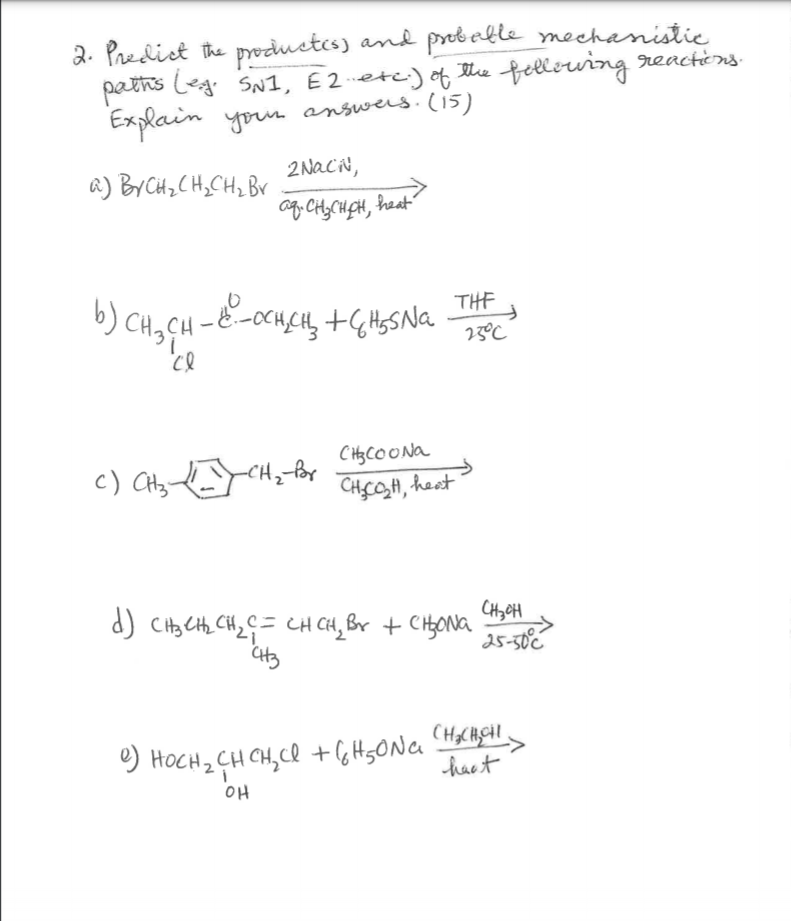 2. Predict the product(s) and probable mechanistic
paths (eg. SN1, E2 ..etc.) of the following reactions.
Explain your answers. (15)
a) BrCH₂CH₂CH₂Br 2NaCN,
aq. CH₃CH₂OH, heat
O
b) CH₃CH-C-OCH₂CH₃ + C₆H₅SNa THF
Cl 25°C
c) CH₃- -CH₂-Br CH₃COONa
CH₃CO₂H, heat
d) CH₃CH₂CH₂C=CHCH₂Br + CH₃ONa CH₃OH
CH₃ 25-50°C
e) HOCH₂CHCH₂Cl + C₆H₅ONa CH₃CH₂OH
OH heat